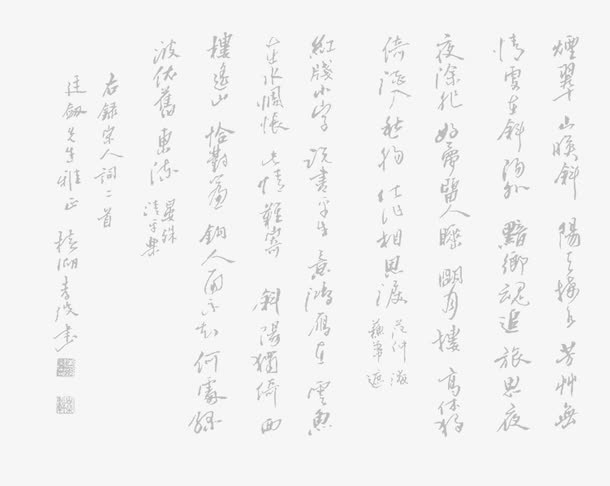 煙翠山暎斜陽天接水芳艸無
情更在斜陽外黯鄉魂追旅思夜
夜除非好夢留人睡明月樓高休獨
倚酒入愁腸化作相思淚
范仲淹
蘇幕遮
紅牋小字說盡平生意鴻雁在雲魚
在水惆悵此情難寄斜陽獨倚西
樓遙山恰對簾鉤人面不知何處綠
波依舊東流
晏殊
清平樂
右錄宋人詞二首
廷劔先生雅正